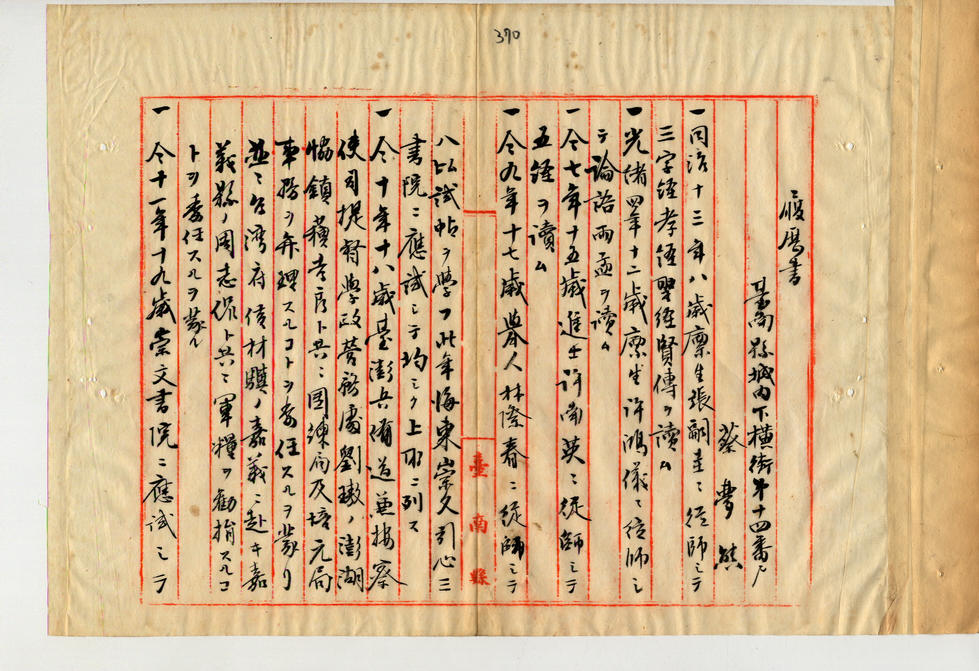 370
履歷書
臺南縣城內下橫街第十四番戶
蔡夢熊
一同治十三年八歲廩生張嗣圭ニ從師シテ
三字經孝經聖經賢傳ヲ讀ム
一光緒四年十二歲廩生許鴻儀ニ從師シ
テ論語兩孟ヲ讀ム
一仝七年十五歲進士許南英ニ從師シテ
五經ヲ讀ム
一仝九年十七歲舉人林際春ニ從師シテ
八比試帖ヲ學フ此年海東崇文引心三
書院ニ應試シテ均シク上取ニ列ス
一仝十年十八歲臺澎兵備道兼按察
使司提督學政營務處劉璈ノ澎湖
協鎮蘇吉良ト共ニ團練局及培元局
事務ヲ弁理スルコトヲ委任スルヲ蒙リ
並ニ台灣府侯材驥ノ嘉義ニ赴キ嘉
義縣ノ周志侃ト共ニ軍糧ヲ勸捐スルコ
トヲ委任スルヲ蒙ル
一仝十一年十九歲崇文書院ニ應試シテ
臺南縣